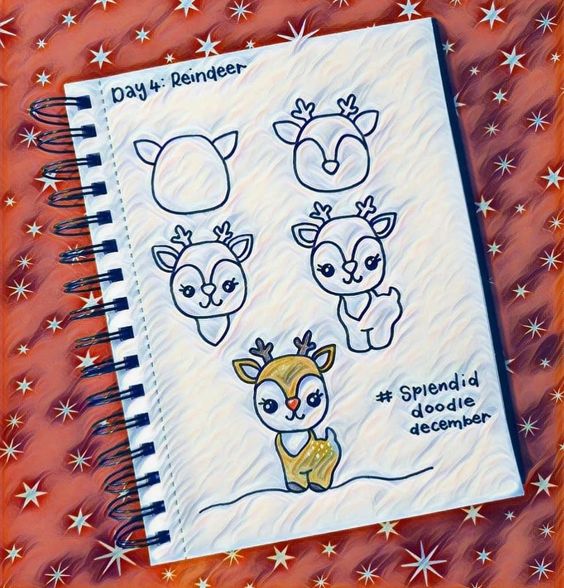 Day 4: Reindeer
# Splendid
doodle
december